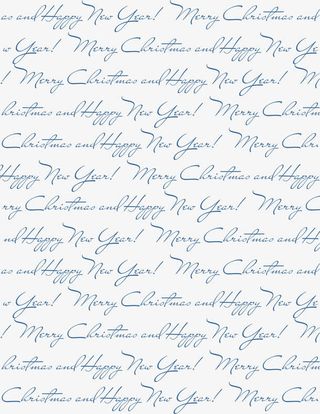 as and Happy New Year! Merry Christmas and Happ
w Year! Merry Christmas and Happy New Year!
! Merry Christmas and Happy New Year! Mer
hristmas and Happy New Year! Merry Christm
Christmas and Happy New Year! Merry Ch
Happy New Year! Merry Christmas and Happy
rry Christmas and Happy New Year! Merry Ch
nd Happy New Year! Merry Christmas and H
as and Happy New Year! Merry Christmas and Happ
w Year! Merry Christmas and Happy New Year!
! Merry Christmas and Happy New Year! Mer
hristmas and Happy New Year! Merry Christm
Christmas and Happy New Year! Merry Ch